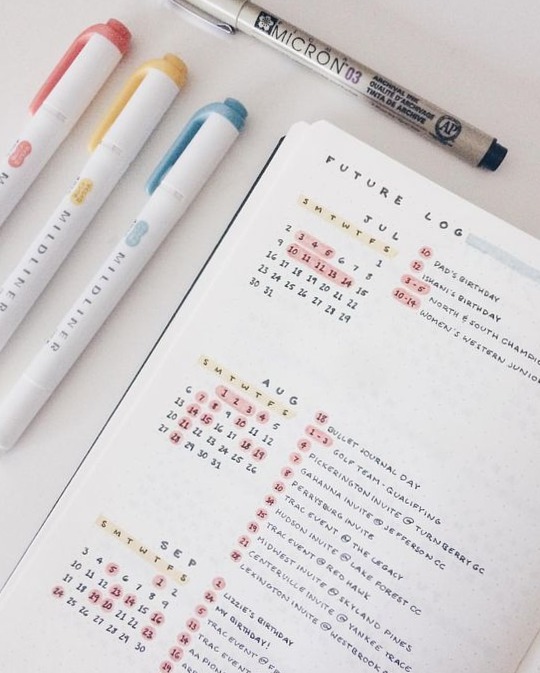 MICRON 03
ARCHIVAL INK
QUALITÉ D'ARCHIVAGE
AP
MILDLINER
MILDLINER
FUTURE LOG
JUL
S M T W T F S
1
2 3 4 5 6 7 8
9 10 11 12 13 14 15
16 17 18 19 20 21 22
23 24 25 26 27 28 29
30 31
DAD'S BIRTHDAY
12 ISHANI'S BIRTHDAY
3-5 NORTH & SOUTH
10-14 WOMEN'S WESTERN JUNIOR
AUG
S M T W T F S
1 2 3 4 5
6 7 8 9 10 11 12
13 14 15 16 17 18 19
20 21 22 23 24 25 26
27 28 29 30 31
BULLET JOURNAL DAY
1-3 GOLF TEAM - QUALIFYING
4 PICKERINGTON INVITE @ TURNBERRY GC
7 GAHANNA INVITE @ JEFFERSON CC
8 PERRYSBURG INVITE
10 TRAC EVENT @ THE LEGACY
14 HUDSON INVITE @ LAKE FOREST CC
15 TRAC EVENT @ RED HAWK
MIDWEST INVITE @ SKYLAND PINES
21 CENTERVILLE INVITE @ YANKEE TRACE
LEXINGTON INVITE @ WESTBROOK
SEP
S M T W T F S
1 2
3 4 5 6 7 8 9
10 11 12 13 14 15 16
17 18 19 20 21 22 23
24 25 26 27 28 29 30
1 LIZZIE'S BIRTHDAY
MY BIRTHDAY!
5 TRAC EVENT @
13 TRAC EVENT
AA